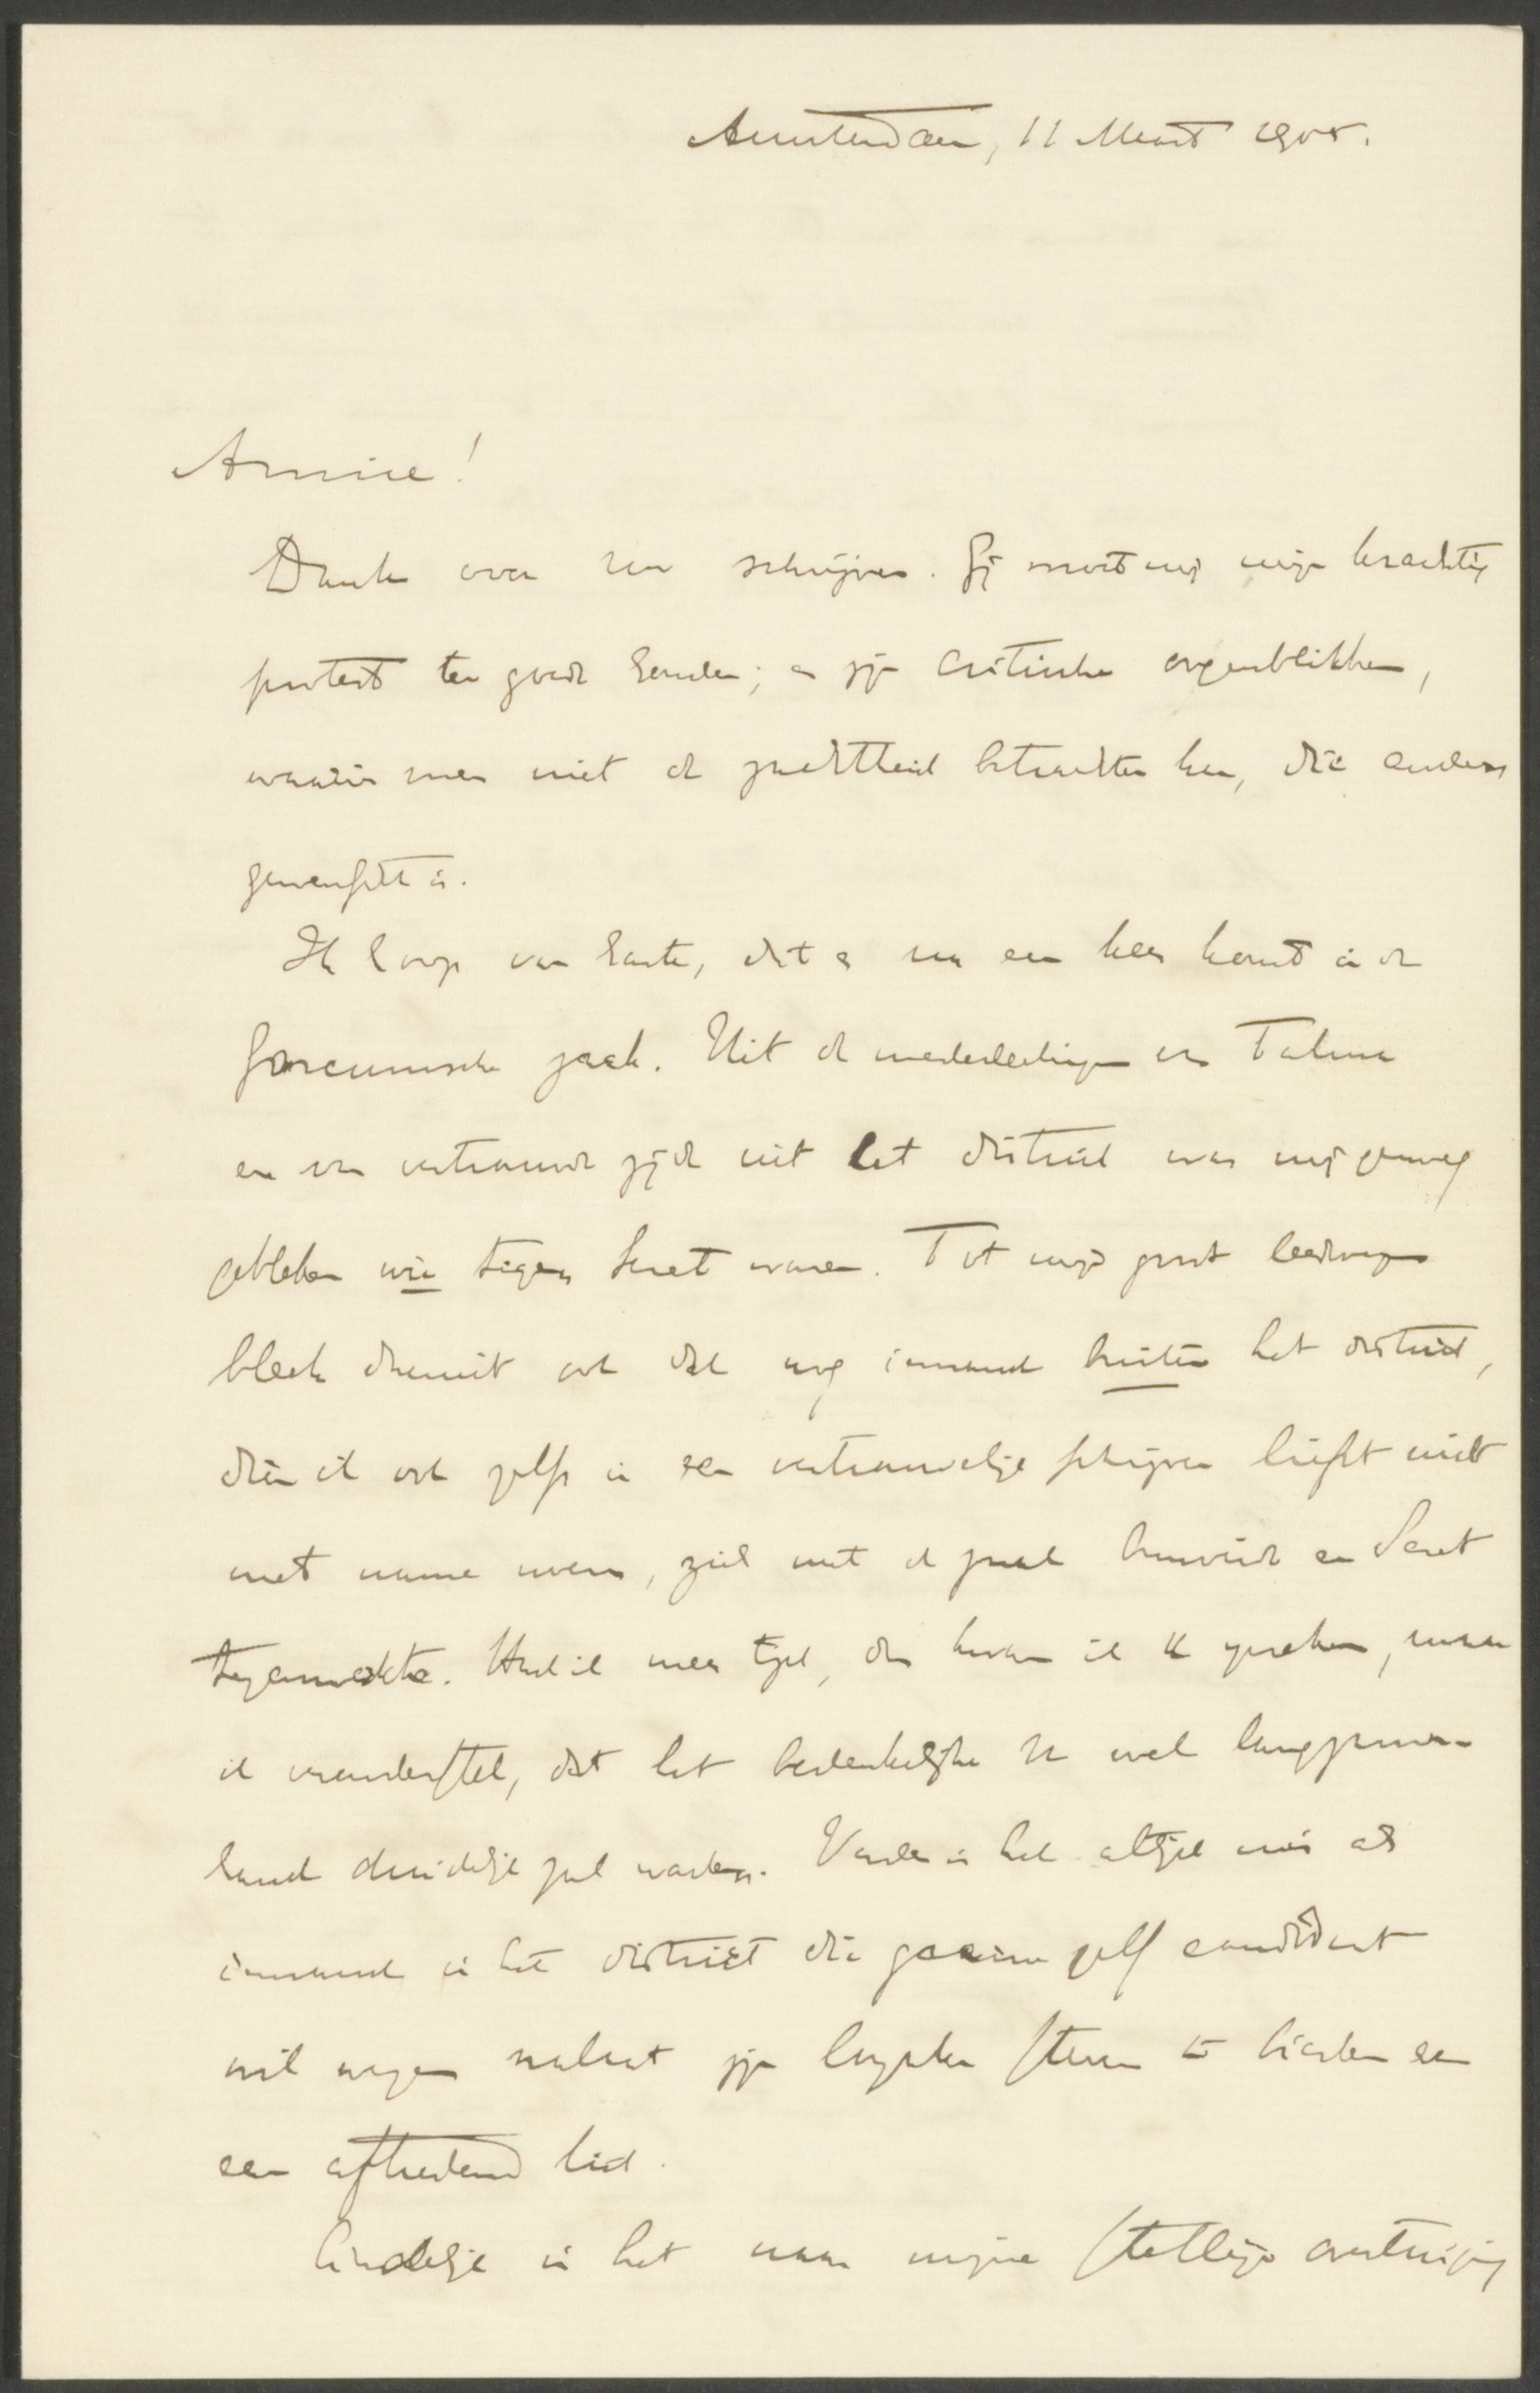 Amsterdam, 11 Maart 1905.
Amice!
Dank voor uw schrijven. Gij moet mij mijn krachtig
protest ten goede houden; er zijn critische oogenblikken,
waarin men niet de zachtheid betrachten kan, die anders
gewenscht is.
Ik hoop van harte, dat er nu een keer komt in de
Gorcumsche zaak. Uit de mededeelingen van Talma
en van vertrouwde zijde uit het district was mij genoeg
gebleken wie tegen Seret waren. Tot mijn groot leedwezen
bleek daaruit ook dat nog iemand buiten het district,
dien ik ook zelfs in een vertrouwelijk schrijven liefst niet
met name noem, zich met de zaak bemoeide en Seret
tegenwerkte. Had ik meer tijd, dan kwam ik U spreken, maar
ik vooronderstel, dat het bedenkelijke U wel langzamer-
hand duidelijk zal worden. Verder is het altijd mis als
iemand in het district die gaarne zelf candidaat
wil wezen nalaat zijn loyalen steun te bieden aan
een aftredend lid.
Eindelijk is het naar mijne stellige overtuiging